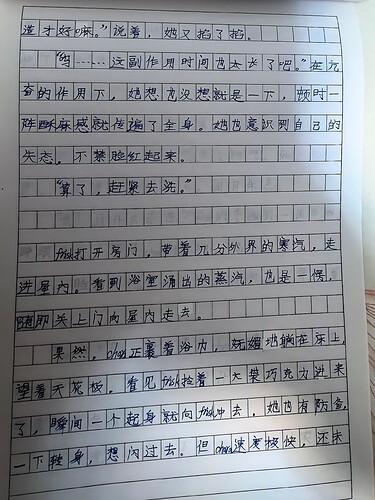 渣才好嘛。"说着，她又掐了掐。
"呜……这副作用时间也太长了吧。"在亢
奋的作用下，她想也没想就是一下，顿时一
阵酥麻感就传遍了全身。她也意识到自己的
失态。不禁脸红起来。
"算了，赶紧去洗。"
打开房门，带着几分外界的寒汽，走
进屋内。看到浴室涌出的蒸汽，也是一愣，
随即关上门向屋内走去。
果然。正裹着浴巾，妩媚地躺在床上，
望着天花板。看见拎着一大袋巧克力进来
了，瞬间一个起身就向冲去，她也有防备，
一下转身，想闪过去。但速度极快，还未